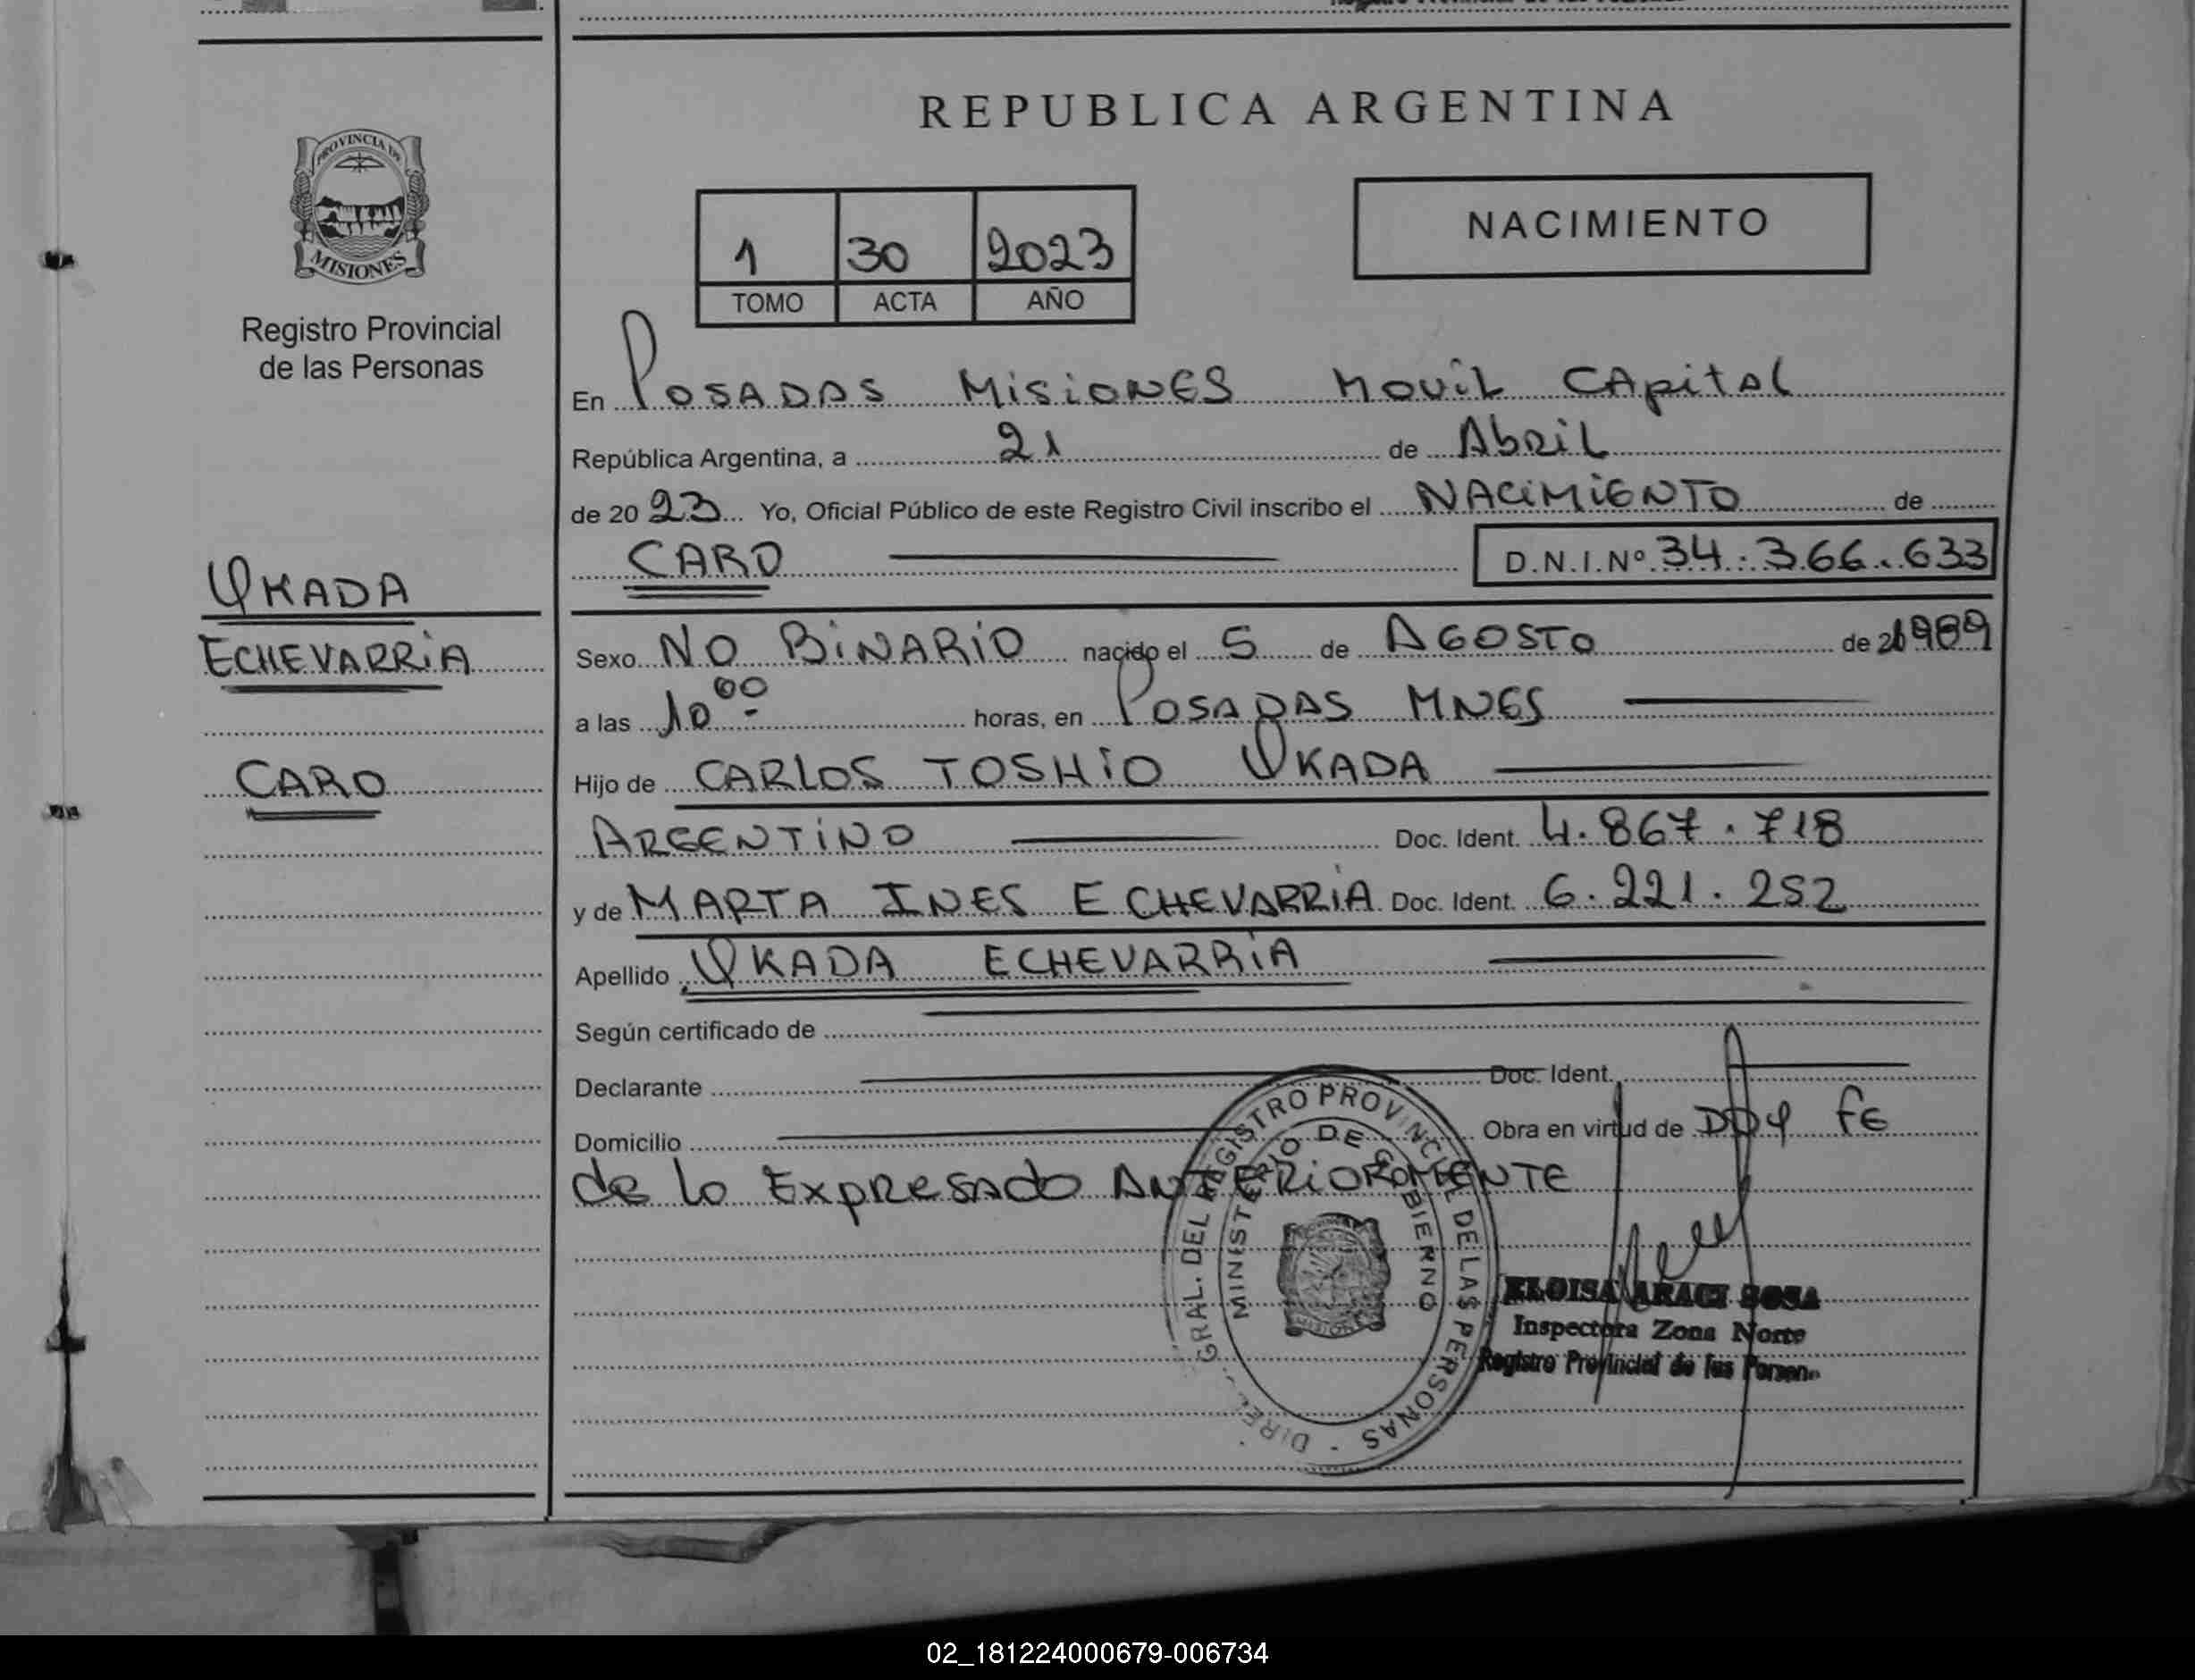 PROVINCIA DE
MISIONES
Registro Provincial
de las Personas
UKADA
ECHEVARRiA
CARO
REPUBLICA ARGENTINA
1 30 2023
TOMO ACTA AÑO
NACIMIENTO
En POSADAS MISIONES MOVIL CAPITAL
República Argentina, a 21 de Abril
de 2023 Yo, Oficial Público de este Registro Civil inscribo el NACIMIENTO de
CARO D.N.I.Nº 34.366.633
Sexo NO BINARIO nacido el 5 de AGOSTO de 1989
a las 10 00 horas, en POSADAS MNES
Hijo de CARLOS TOSHIO UKADA
ARGENTINO Doc. Ident. 4.867.718
y de MARTA INES ECHEVARRIA Doc. Ident. 6.221.252
Apellido UKADA ECHEVARRIA
Según certificado de
Declarante Doc. Ident.
Domicilio Obra en virtud de DOY FE
de lo Expresado ANTERIORMENTE
GRAL. DEL REGISTRO PROVINCIAL DE LAS PERSONAS -
MINISTERIO DE GOBIERNO
MISIONES
ELOISA ARACI SOSA
Inspectora Zona Norte
Registro Provincial de las Person
02_181224000679-006734